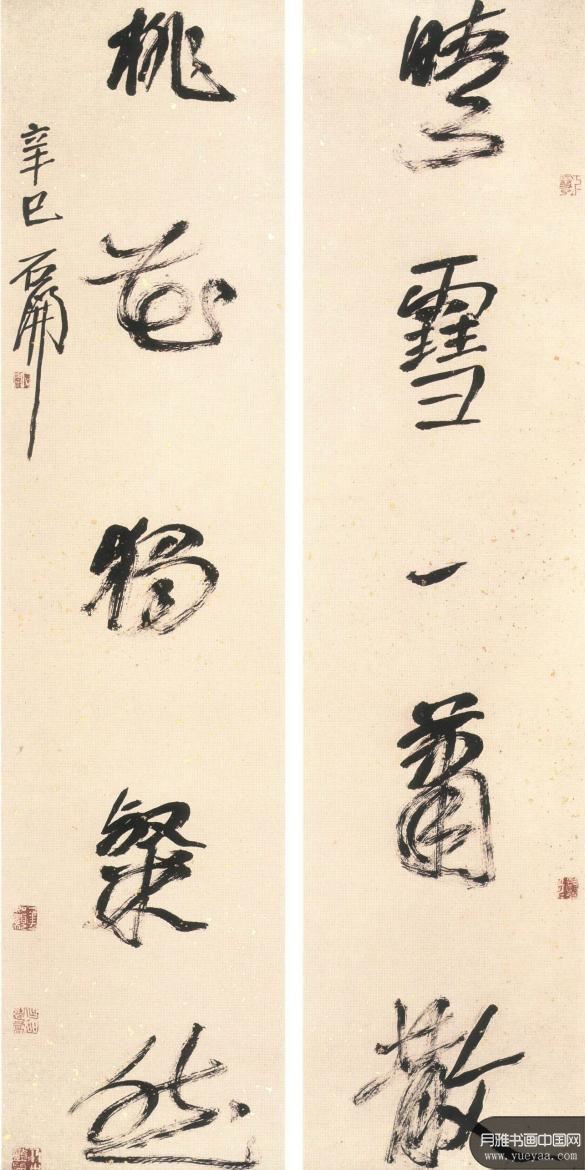 晴雪一蕭散
桃花獨粲然
辛巳 石開
月雅书画中国网
www.yueyaa.com